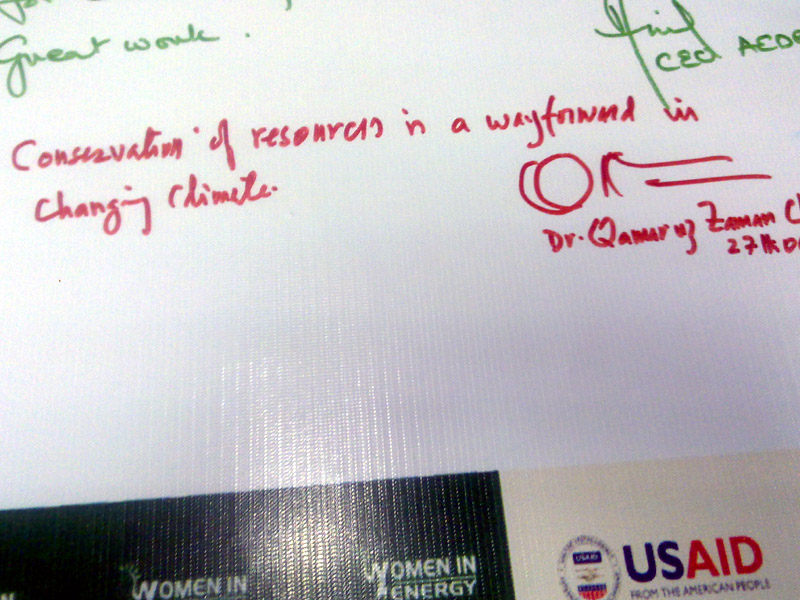 Great work.
CEO AEDB
Conservation of resources is a wayforward in
changing climate.
Dr. Qamar uz Zaman Ch
27th
WOMEN IN
WOMEN IN
ENERGY
USAID
USAID
FROM THE AMERICAN PEOPLE